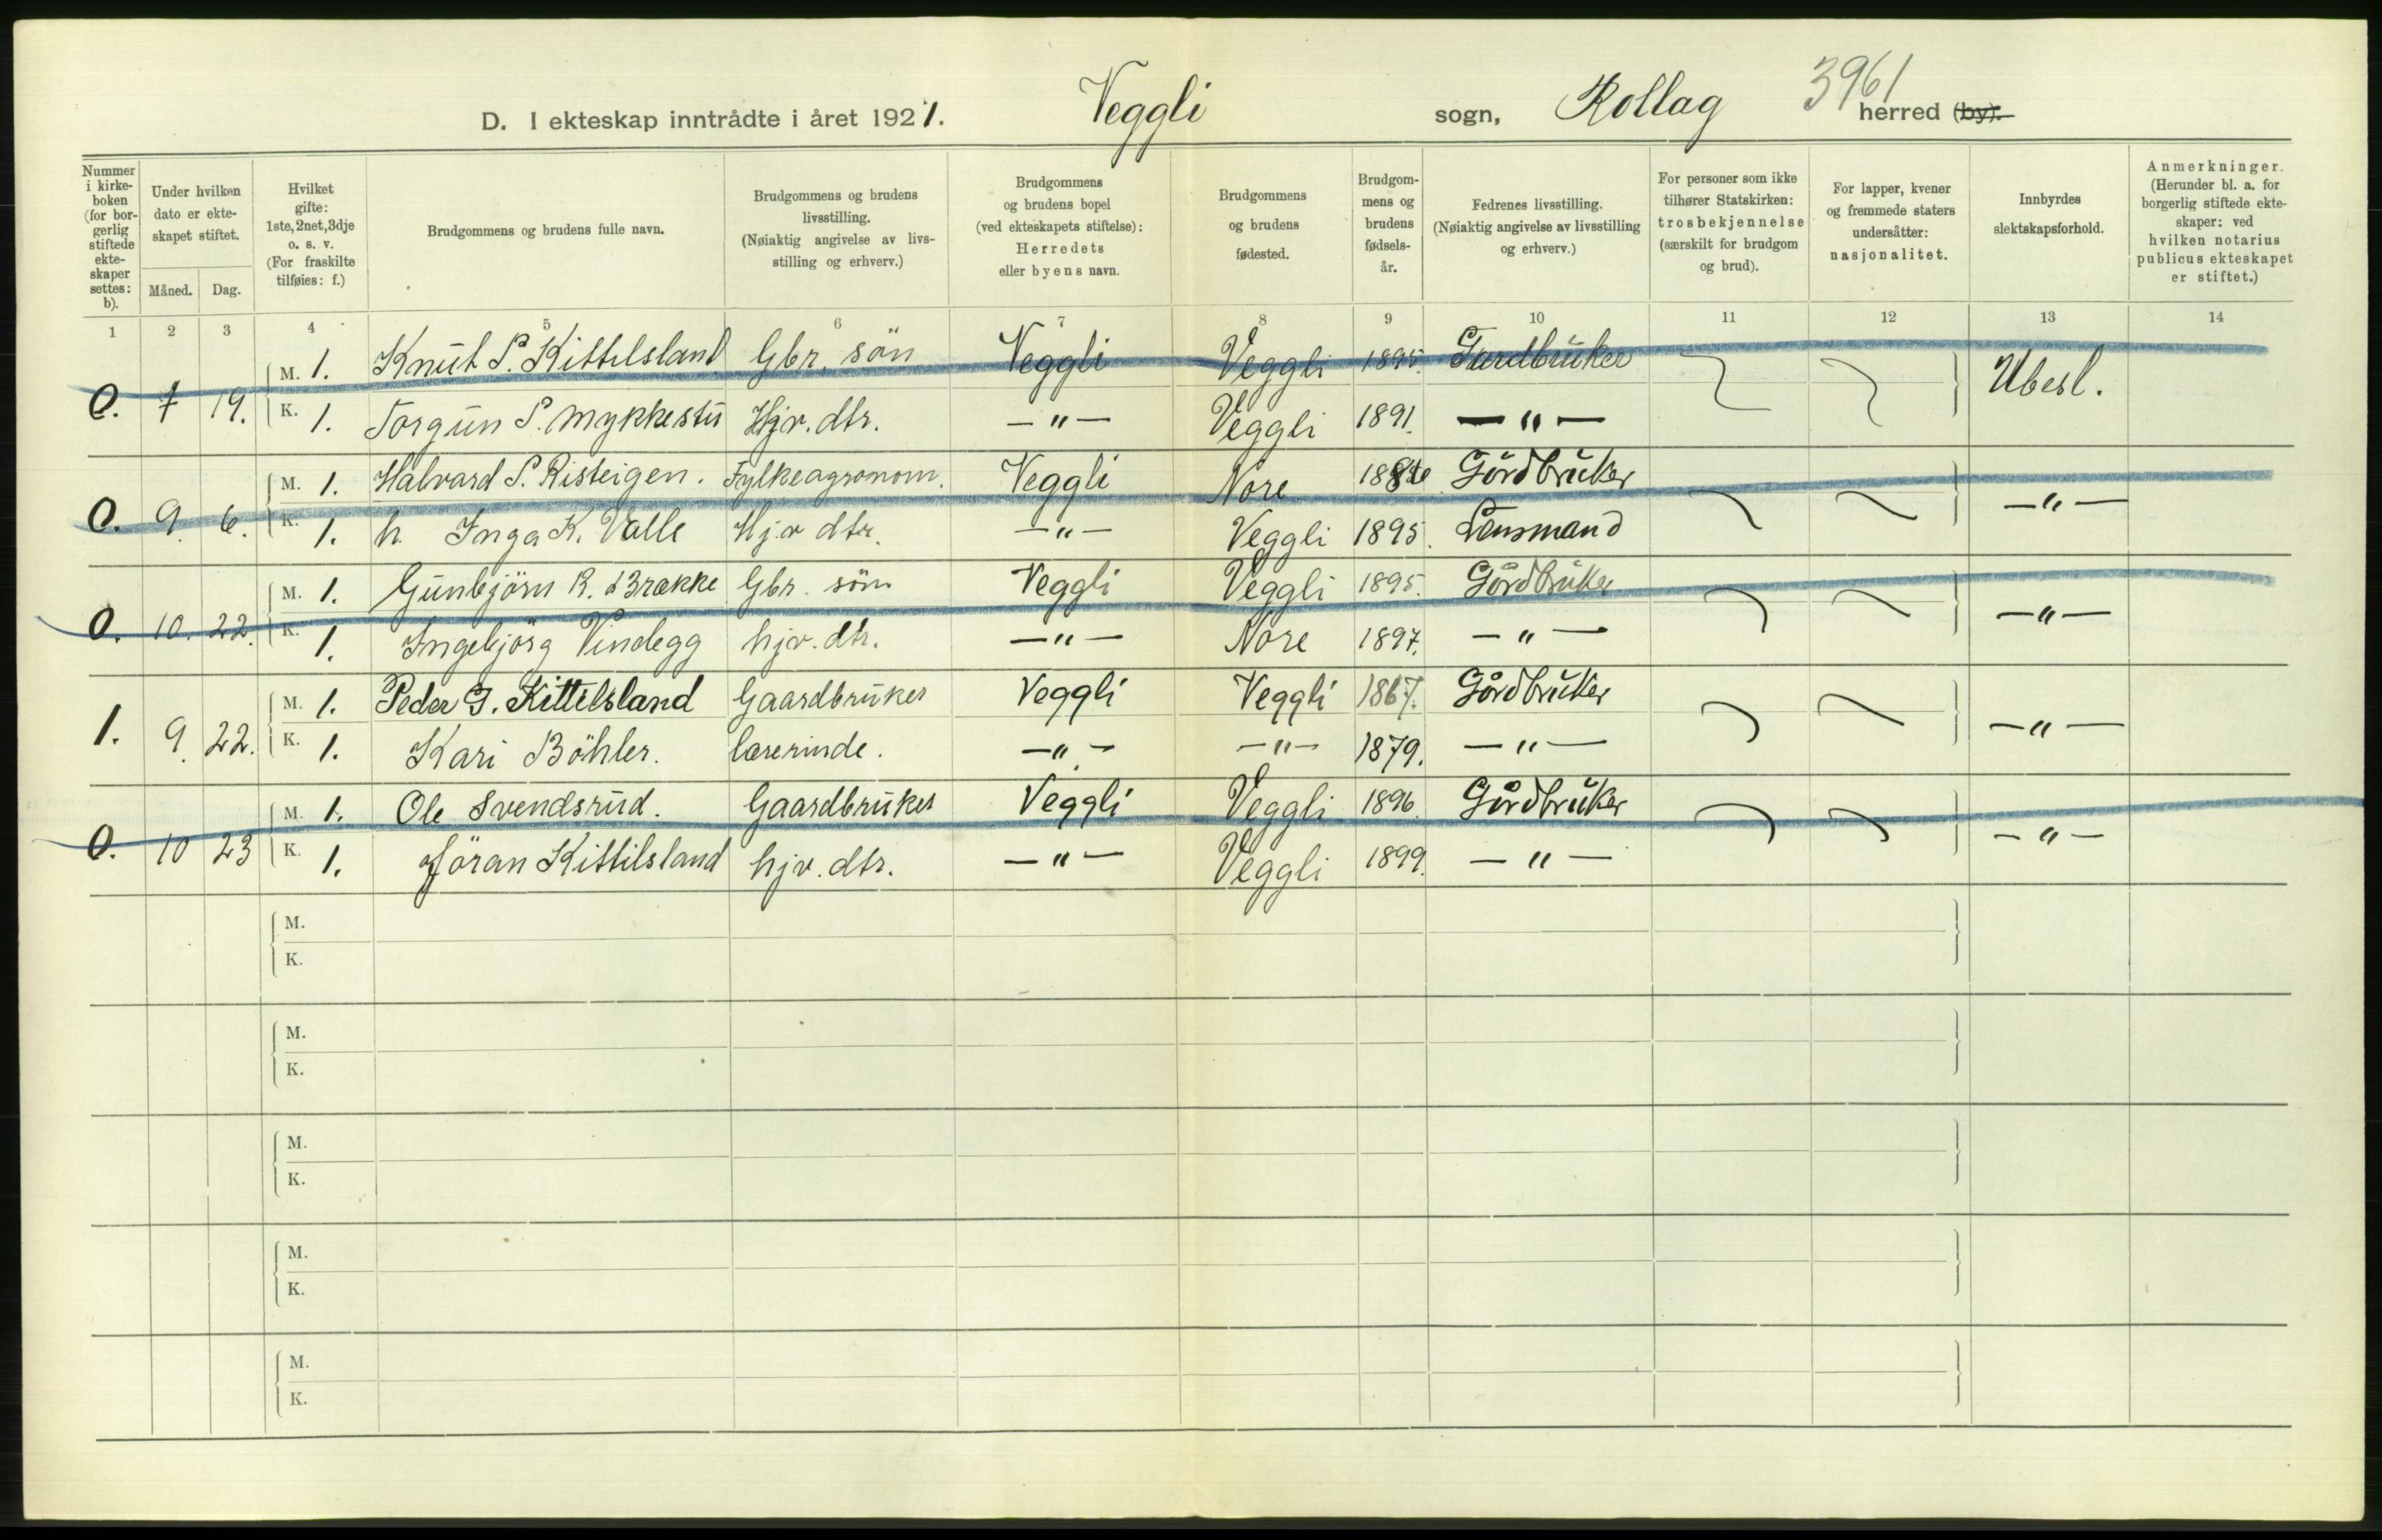 3961
D. I ekteskap inntrådte i året 1921. Veggli sogn, Rollag herred (by).
Nummer i kirke-boken (for bor-gerlig stiftede ekte-skaper settes: b).
Under hvilken dato er ekte-skapet stiftet.
Måned. Dag.
Hvilket gifte: 1ste, 2net, 3dje o. s. v. (For fraskilte tilføies: f.)
Brudgommens og brudens fulle navn.
Brudgommens og brudens livsstilling. (Nøiaktig angivelse av livs-stilling og erhverv.)
Brudgommens og brudens bopel (ved ekteskapets stiftelse): Herredets eller byens navn.
Brudgommens og brudens fødested.
Brudgom-mens og brudens fødsels-år.
Fedrenes livsstilling. (Nøiaktig angivelse av livsstilling og erhverv.)
For personer som ikke tilhører Statskirken: trosbekjennelse (særskilt for brudgom og brud).
For lapper, kvener og fremmede staters undersåtter: nasjonalitet.
Innbyrdes slektskapsforhold.
Anmerkninger. (Herunder bl. a. for borgerlig stiftede ekte-skaper: ved hvilken notarius publicus ekteskapet er stiftet.)
1 2 3 4 5 6 7 8 9 10 11 12 13 14
M. 1. Knut P. Kittilsland Gbr. sön Veggli Veggli 1895. Gardbruker
0. 7 19. Ubesl.
K. 1. Torgun P. Mykkestu Hjv. dtr. — " — Veggli 1891. — " —
M. 1. Halvard P. Risteigen. Fylkeagronom. Veggli Nore Gårdbruker
0. 9. 6. — " —
K. 1. h. Inga K. Valle Hj.v dtr. — " — Veggli 1895. Lensmand
M. 1. Gunbjörn R. Brække Gbr. sön Veggli Veggli 1895. Gårdbruker
0. 10. 22. — " —
K. 1. Ingebjörg Vindegg hjv. dtr. — " — Nore 1897. — " —
M. 1. Peder G. Kittelsland Gaardbruker Veggli Veggli 1867. Gårdbruker
1. 9. 22. — " —
K. 1. Kari Böhler. lærerinde. — " — — " — 1879. — " —
M. 1. Ole Svendsrud. Gaardbruker Veggli Veggli 1896. Gårdbruker
0. 10 23 — " —
K. 1. Jöran Kittilsland hjv. dtr. — " — Veggli 1899. — " —
M.
K.
M.
K.
M.
K.
M.
K.
M.
K.